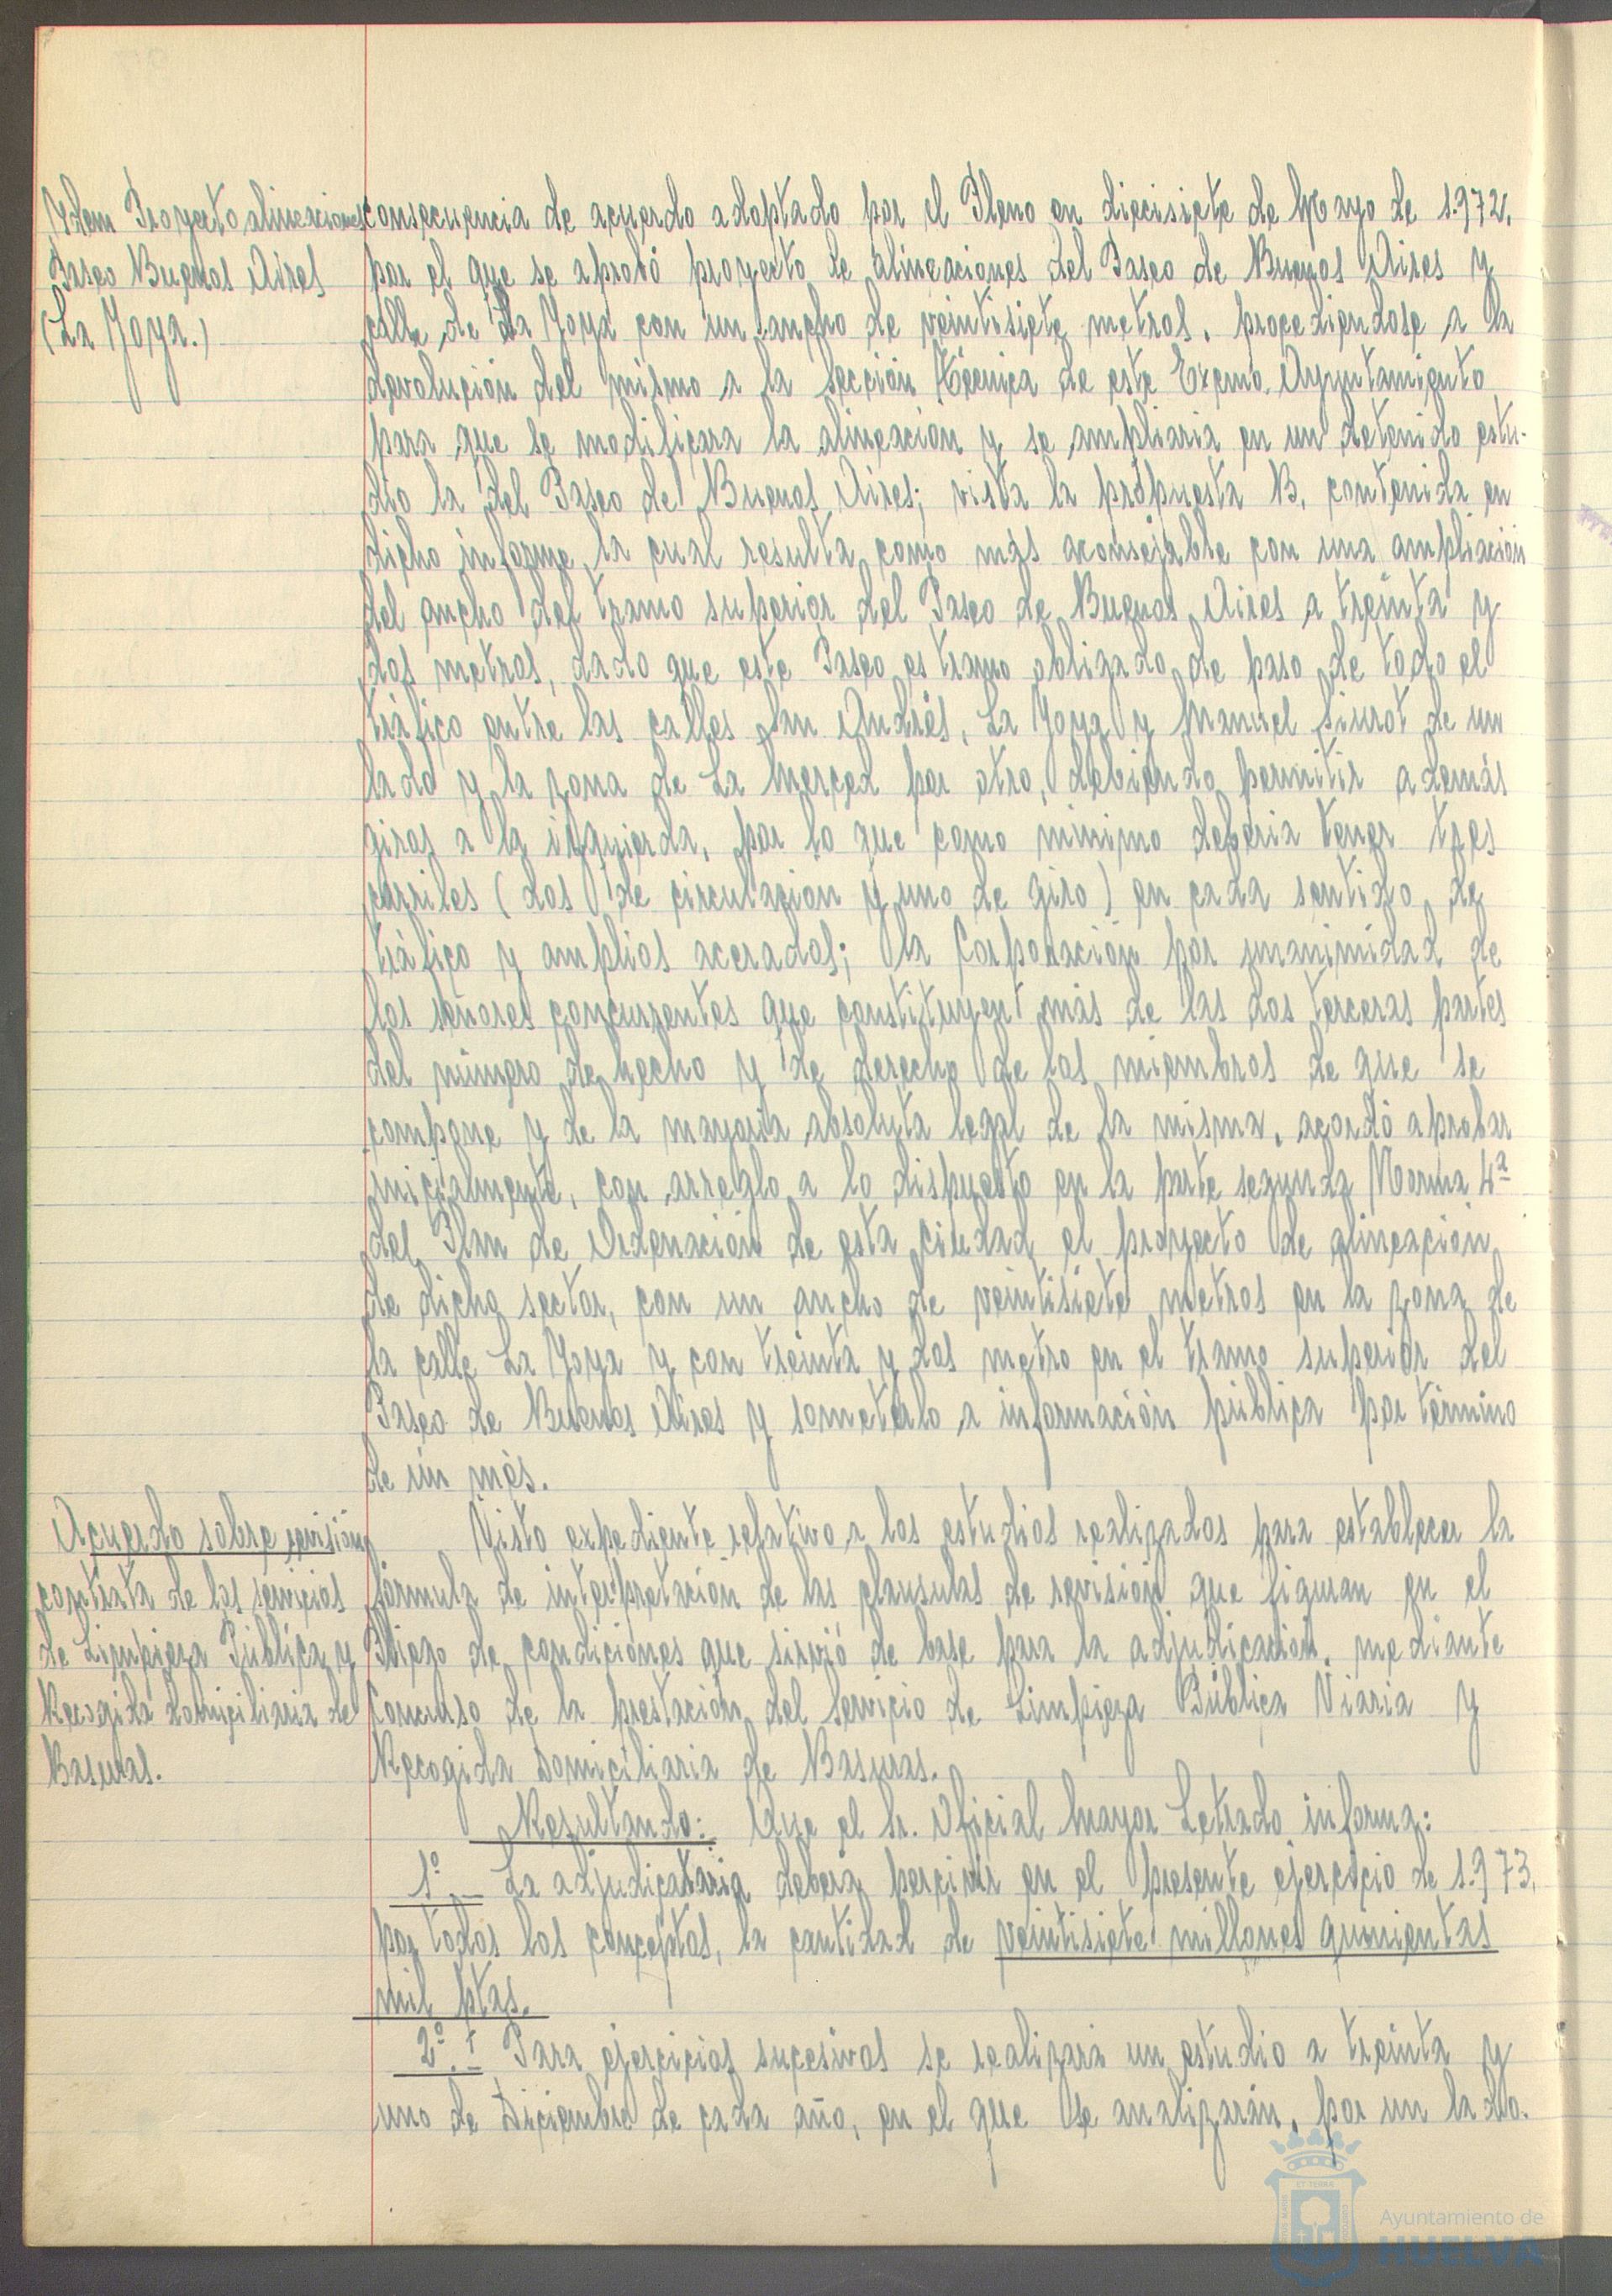 Ydem Proyecto alineaciones
Paseo Buenos Aires
(La Joya.)
consecuencia de acuerdo adoptado por el Pleno en diecisiete de Mayo de 1.972,
por el que se aprobó proyecto de alineaciones del Paseo de Buenos Aires y
calle de La Joya con un ancho de veintisiete metros, procediendose a la
devolución del mismo a la Sección Técnica de este Excmo. Ayuntamiento
para que se modificara la alineación y se ampliaria en un detenido estu-
dio la del Paseo de Buenos Aires; vista la propuesta B, contenida en
dicho informe, la cual resulta como más aconsejable con una ampliación
del ancho del tramo superior del Paseo de Buenos Aires a treinta y
dos metros, dado que este Paseo es tramo obligado de paso de todo el
tráfico entre las calles San Andrés, La Joya y Manuel Siurot de un
lado y la zona de La Merced por otro, debiendo permitir además
giros a la izquierda, por lo que como mínimo deberia tener tres
carriles (dos de circulación y uno de giro) en cada sentido de
tráfico y amplios acerados; la Corporación por unanimidad de
los señores concurrentes que constituyen más de las dos terceras partes
del número de hecho y de derecho de los miembros de que se
compone y de la mayoría absoluta legal de la misma, acordó aprobar
inicialmente, con arreglo a lo dispuesto en la parte segunda Norma 4ª
del Plan de Ordenación de esta ciudad, el proyecto de alineación
de dicho sector, con un ancho de veintisiete metros en la zona de
la calle La Joya y con treinta y dos metro en el tramo superior del
Paseo de Buenos Aires y someterlo a información pública por término
de un més.
Acuerdo sobre revisión
contrata de los servicios
de Limpieza Pública y
Recogida domiciliaria de
Basuras.
Visto expediente relativo a los estudios realizados para establecer la
fórmula de interpretación de las clausulas de revisión que figuran en el
Pliego de condiciones que sirvió de base para la adjudicación, mediante
Concurso de la prestación del Servicio de Limpieza Pública Viaria y
Recogida Domiciliaria de Basuras.
Resultando: Que el Sr. Oficial Mayor Letrado informa:
1º.- La adjudicataria deberá percivir en el presente ejercicio de 1.973,
por todos los conceptos, la cantidad de veintisiete millones quinientas
mil ptas.
2º.- Para ejercicios sucesivos se realizará un estudio a treinta y
uno de Diciembre de cada año, en el que se analizarán, por un lado.
Ayuntamiento de
HUELVA